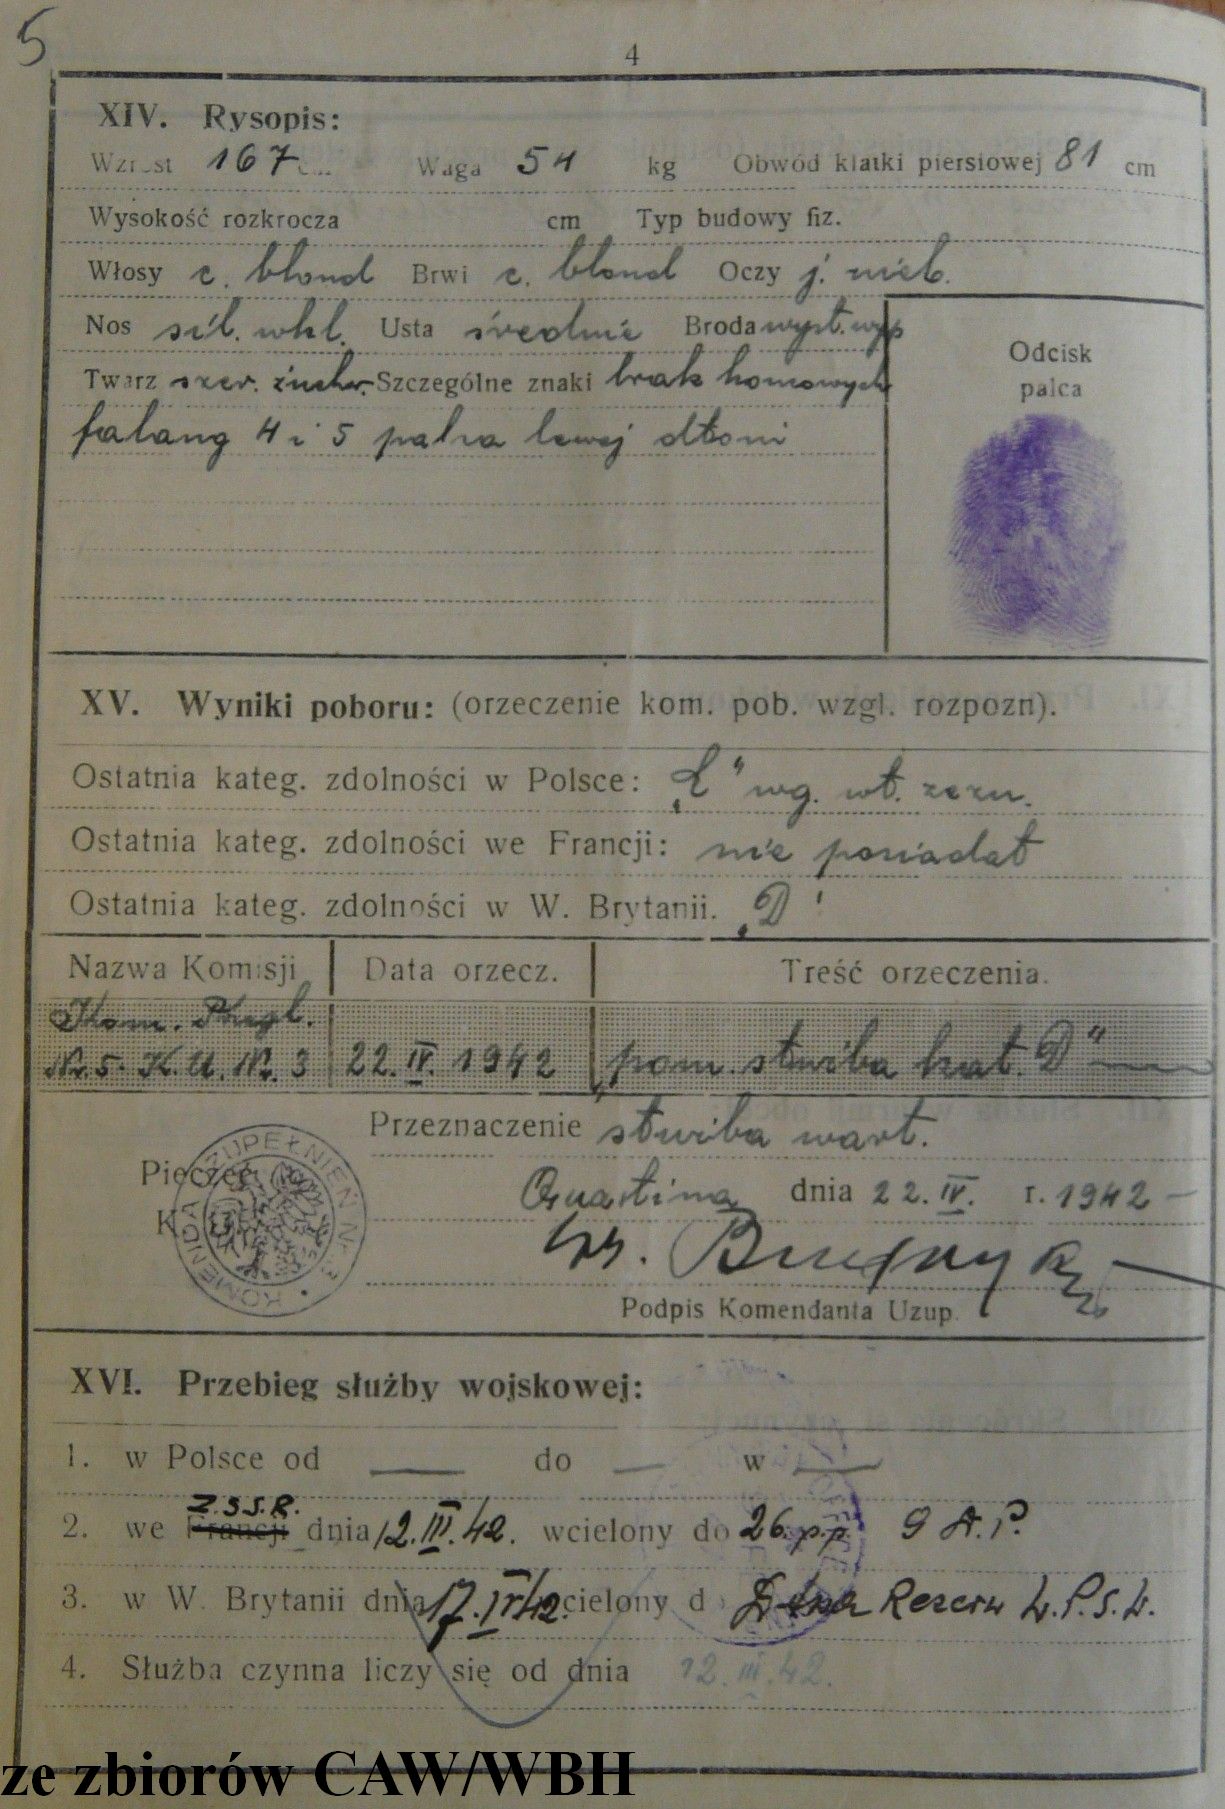 5
4
XIV. Rysopis:
Wzrost 167 cm Waga 54 kg Obwód klatki piersiowej 81 cm
Wysokość rozkrocza cm Typ budowy fiz.
Włosy c. blond Brwi c. blond Oczy j. nieb.
Nos sil. wkl. Usta średnie Broda wyst. wyp
Twarz szer. żuchw. Szczególne znaki brak końcowych
falang 4 i 5 palca lewej dłoni
Odcisk
palca
XV. Wyniki poboru: (orzeczenie kom. pob. wzgl. rozpozn).
Ostatnia kateg. zdolności w Polsce: „E" wg. wł. zezn.
Ostatnia kateg. zdolności we Francji: nie posiadał
Ostatnia kateg. zdolności w W. Brytanii. „D"
Nazwa Komisji Data orzecz. Treść orzeczenia.
Kom. Przegl.
Nr. 5. K. U. Nr. 3 22. IV. 1942 „pom. służba kat. D"
Przeznaczenie służba wart.
Pieczęć
K. U.
KOMENDA UZUPEŁNIEŃ Nr. 3
dnia 22. IV. r. 1942
Podpis Komendanta Uzup.
XVI. Przebieg służby wojskowej:
1. w Polsce od — do — w —
Z.S.S.R.
2. we Francji dnia 12. III. 42. wcielony do 26. p.p. 9 D.P.
3. w W. Brytanii dnia 17. IV 42. wcielony do Rezerw Ł.P.S.W.
4. Służba czynna liczy się od dnia 12. III. 42.
ze zbiorów CAW/WBH